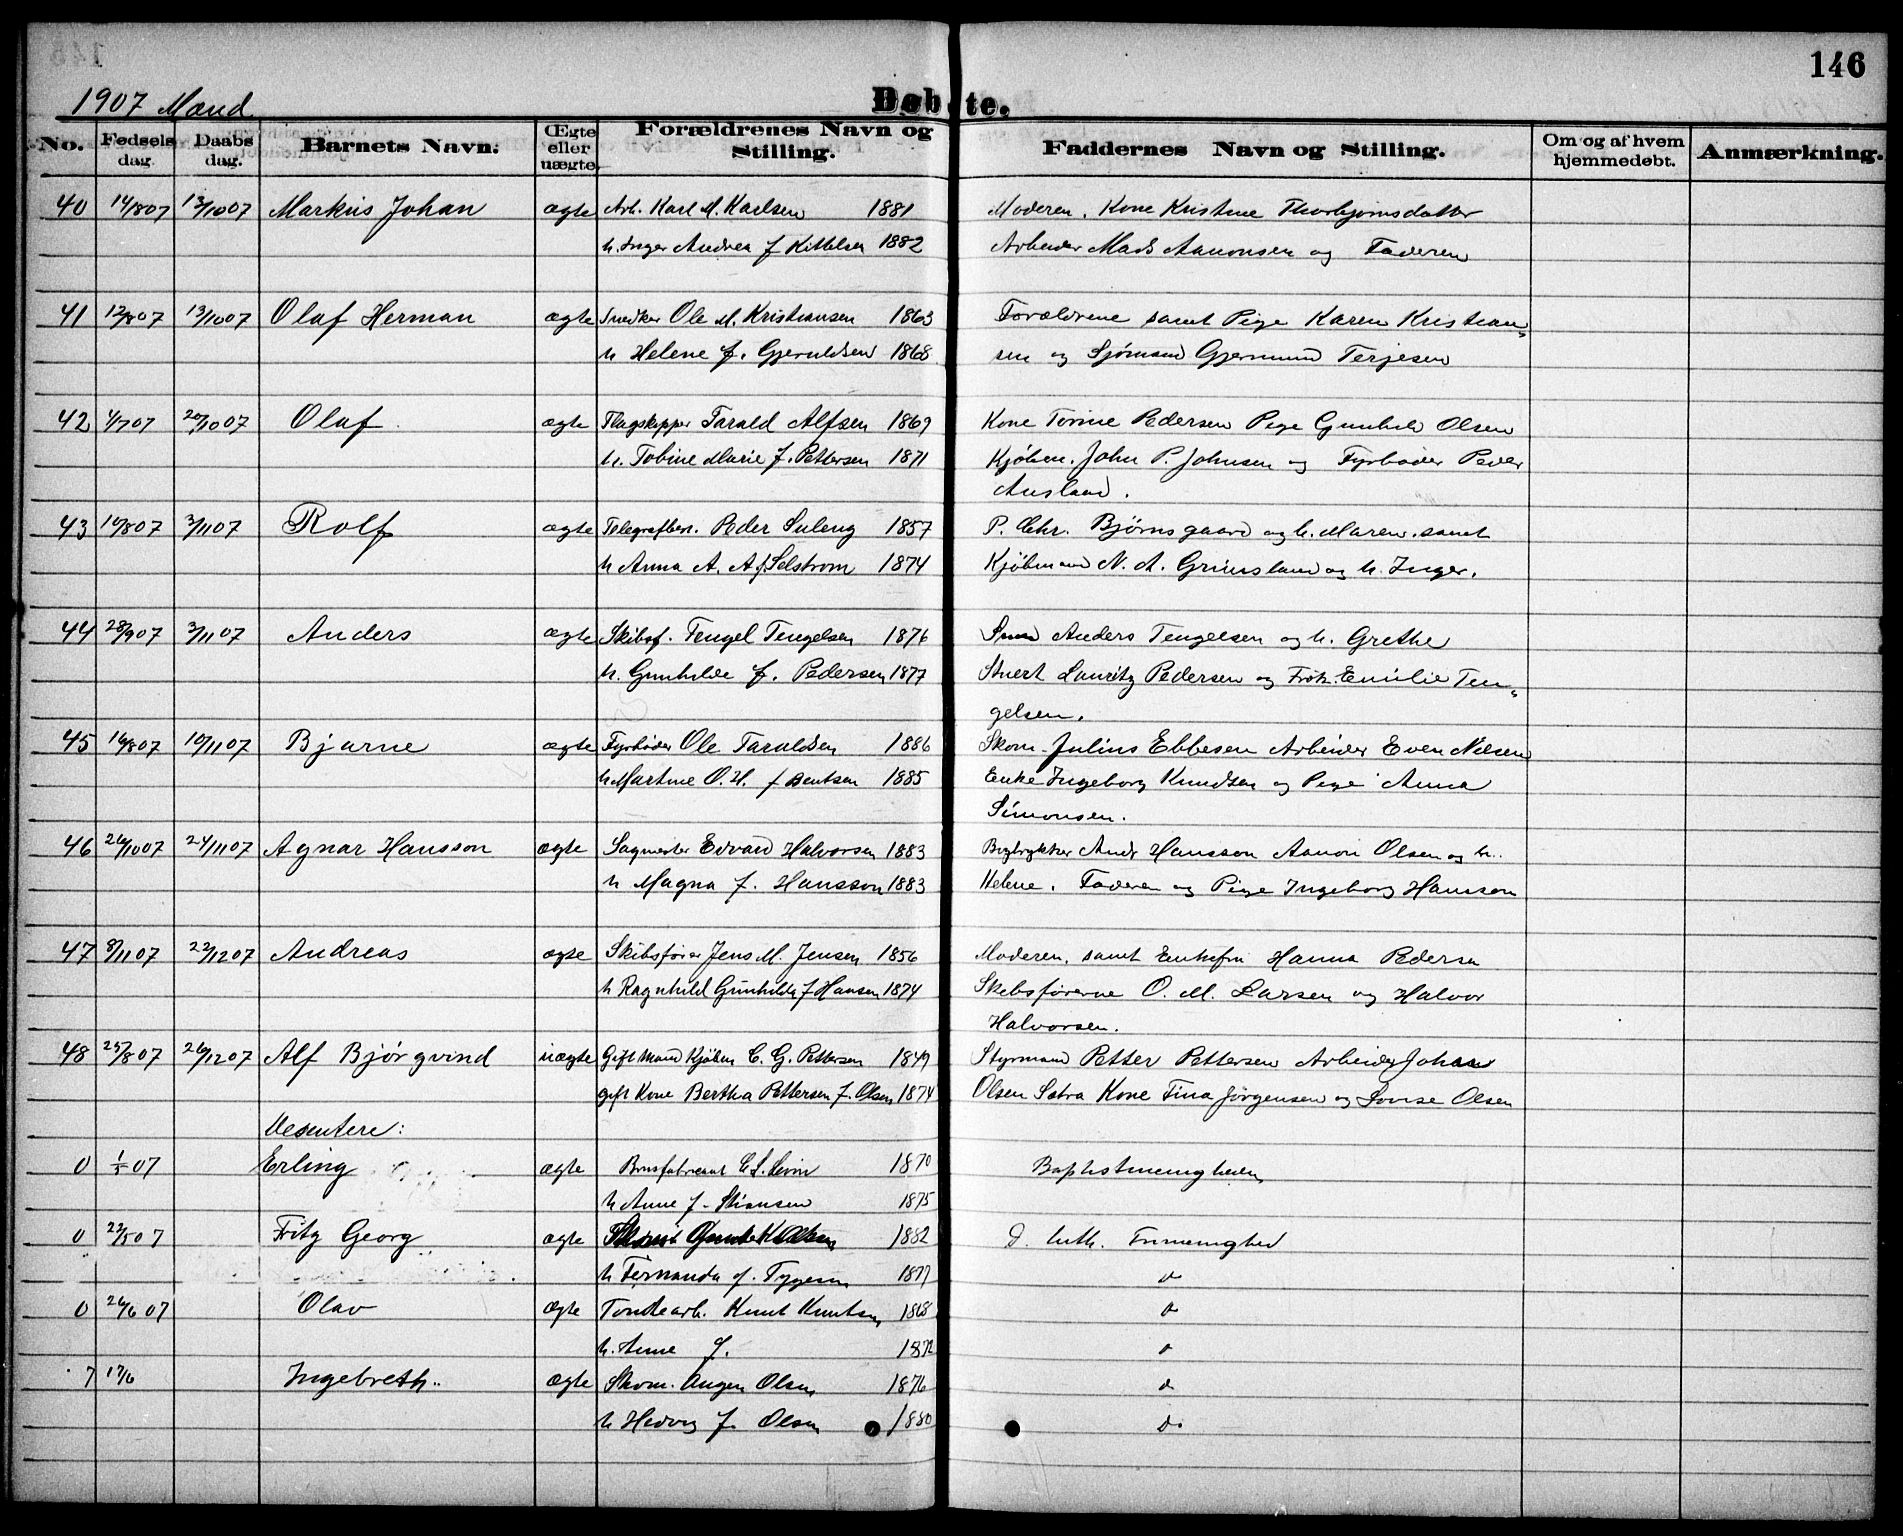 146
1907 Mænd.
Døbte.
No. Fødselsdag. Daabsdag. Barnets Navn. Ægte eller uægte. Forældrenes Navn og Stilling. Faddernes Navn og Stilling. Om og af hvem hjemmedøbt. Anmærkning.
40 14/8 07 13/10 07 Markus Johan ægte Arb. Karl M. Karlsen 1881 Moderen, Kone Kristine Thorbjørnsdatter
h. Inger Andrea f Kittelsen 1882 Arbeider Mads Aanonsen og Faderen
41 12/8 07 13/10 07 Olaf Herman ægte Snedker Ole M. Kristiansen 1863 Forældrene samt Pige Karen Kristian-
h Helene f. Gjeruldsen 1868 sen og Sjømand Gjermund Terjesen
42 4/7 07 20/10 07 Olaf ægte Flagskipper Tarald Alfsen 1869 Kone Torine Pedersen Pige Gunhild Olsen
h. Tobine Marie f. Pettersen 1871 Kjøbm. John P. Johnsen og Fyrbøder Peder
Ausland.
43 10/8 07 3/11 07 Rolf ægte Telegrafbest. Peder Suleng 1857 P. Chr. Bjørnsgaard og h. Maren, samt
h Anna A. A f Selstrom 1874 Kjøbmand N. A. Grimsland og h. Inger.
44 28/9 07 3/11 07 Anders ægte Skibsf. Tengel Tengelsen 1876 Smed Anders Tengelsen og h. Grethe
h. Gunhilde f. Pedersen 1877 Stuert Lauritz Pedersen og Frøk. Emilie Ten-
gelsen.
45 16/8 07 10/11 07 Bjarne ægte Fyrbøder Ole Taraldsen 1886 Skom. Julius Ebbesen Arbeider Even Nilsen
h Martine O. H. f Bentsen 1885 Enke Ingeborg Knudsen og Pige Anna
Simonsen.
46 26/10 07 24/11 07 Agnar Hansson ægte Sagmester Edvard Halvorsen 1883 Bogtrykker Andr Hansson Aanon Olsen og h.
h Magna f. Hansson 1883 Helene. Faderen og Pige Ingeborg Hansson
47 8/11 07 22/12 07 Andreas ægte Skibsfører Jens M. Jensen 1856 Moderen, samt Enkefru Hanna Pedersen
h Ragnhild Gunhilde f Hansen 1874 Skibsførerne O. M. Larsen og Halvor
Halvorsen.
48 25/8 07 26/12 07 Alf Bjørgvind uægte Gift Mand Kjøbm C. G. Pettersen 1849 Styrmand Petter Pettersen Arbeider Johan
gift Kone Bertha Pettersen f. Olsen 1874 Olsen Sætra Kone Tina Jørgensen og Lovise Olsen
Desentere:
0 1/5 07 Erling ægte Brusfabrikant 1870 Baptistmenigheden
h Anne f. Stiansen 1875
0 22/5 07 Fritz Georg ægte 1882 D. luth. Frimenighed
h Fernanda f. Tygesen 1877 do
0 26/6 07 Olav ægte Tøndearb. Knut Knutsen 1868 do
h. Anne f. 1872 do
7 17/6 Ingebreth ægte Skom. Augen Olsen 1876 do
h Hedvig f. Olsen 1880 do